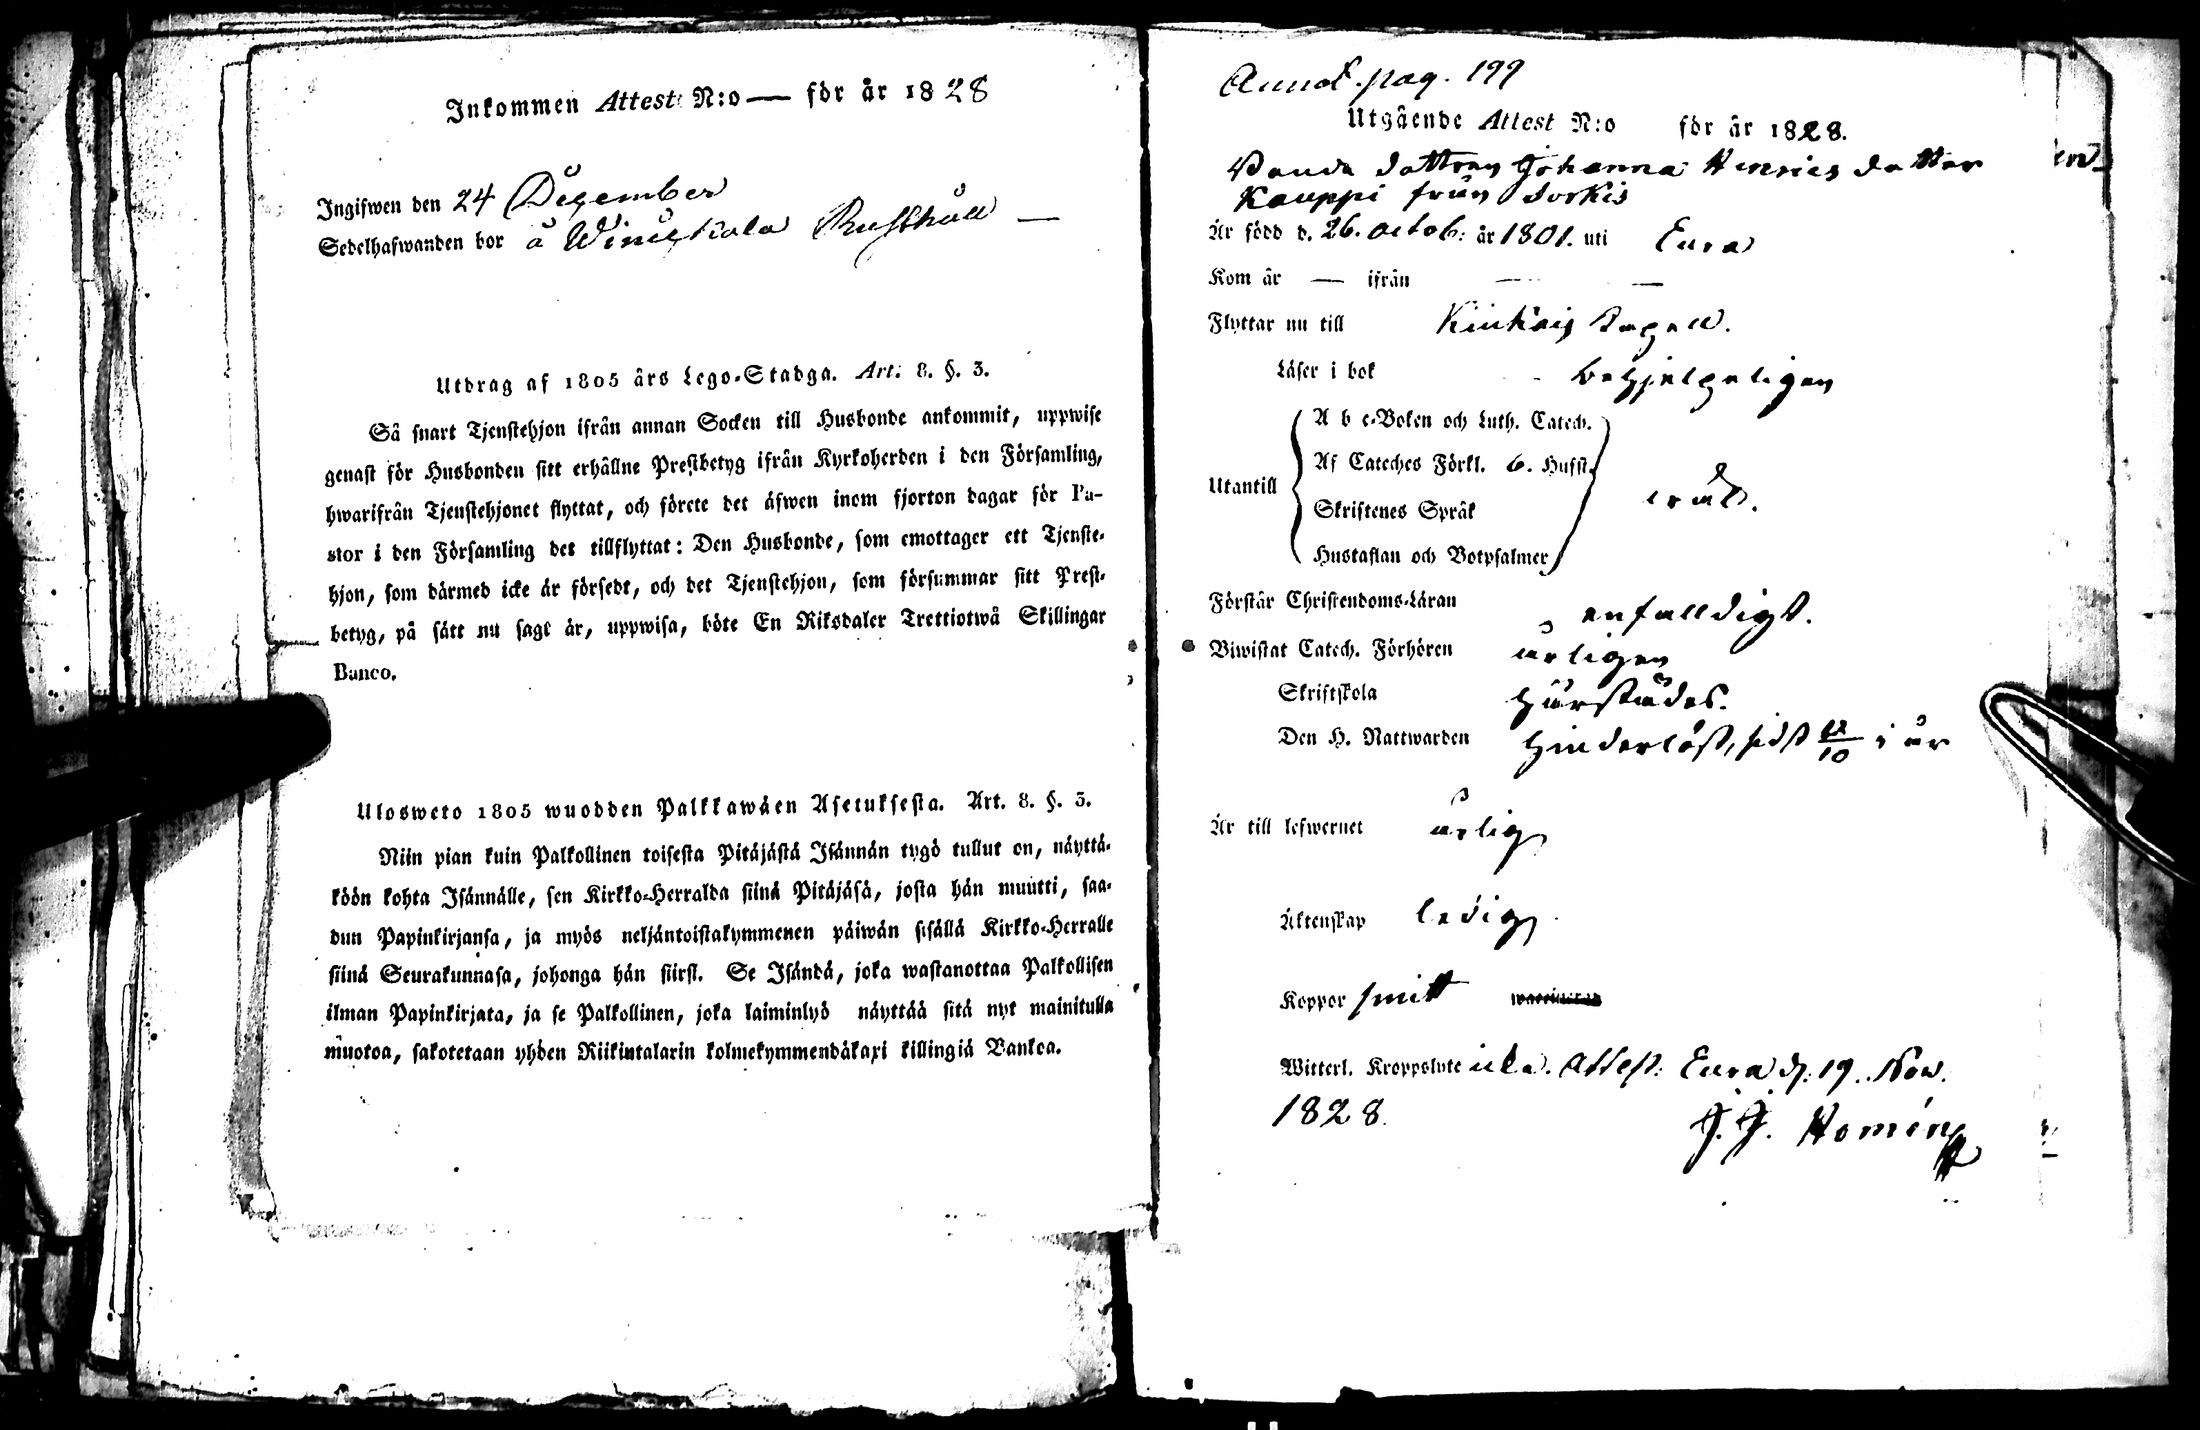 Inkommen Attest N:o — för år 1828
Ingifwen den 24 December
Sedelhafwanden bor å Rusthåll —
Utdrag af 1805 års Lego-Stadga. Art: 8. §. 3.
Så snart Tjenstehjon ifrån annan Socken till Husbonde ankommit, uppwise
genast för Husbonden sitt erhållne Prestbetyg ifrån Kyrkoherden i den Församling,
hwarifrån Tjenstehjonet flyttat, och förete det äfwen inom fjorton dagar för Pa-
stor i den Församling det tillflyttat: Den Husbonde, som emottager ett Tjenste-
hjon, som därmed icke är försedt, och det Tjenstehjon, som försummar sitt Prest-
betyg, på sätt nu sagt är, uppwisa, böte En Riksdaler Trettiotwå Skillingar
Banco.
Ulosweto 1805 wuodden Palkkawäen Asetuksesta. Art. 8. §. 3.
Niin pian kuin Palkollinen toisesta Pitäjästä Isännän tygö tullut on, näyttä-
köön kohta Isännälle, sen Kirkko-Herralda siinä Pitäjäsä, josta hän muutti, saa-
dun Papinkirjansa, ja myös neljäntoistakymmenen päiwän sisällä Kirkko-Herralle
siinä Seurakunnasa, johonga hän siirst. Se Isändä, joka wastanottaa Palkollisen
ilman Papinkirjata, ja se Palkollinen, joka laiminlyö näyttää sitä nyt mainitulla
muotoa, sakotetaan yhden Riikintalarin kolmekymmendäkaxi killingiä Bankoa.
Annot. pag. 199
Utgående Attest N:o för år 1828.
Bonde dottren Johanna Henrics dotter
Kauppi från Sorkis
Är född d. 26. octob: år 1801. uti Eura
Kom år — ifrån — —
Flyttar nu till Kiukais Capell.
Läser i bok behjelpeligen
Utantill
A b c-Boken och Luth. Catech.
Af Cateches Förkl. 6. Hufst.
Skriftenes Språk
Hustaflan och Botpsalmer
Förstår Christendoms-Läran enfalldigt.
Biwistat Catech. Förhören årligen
Skriftskola härstädes.
Den H. Nattwarden hinderlöst, sidst 12/10 i år
Är till lefwernet ärlig
Äktenskap ledig
Koppor smitt
Witterl. Kroppslyte icke. Attest: Eura d. 19. Nov.
1828.
J. J. Homén